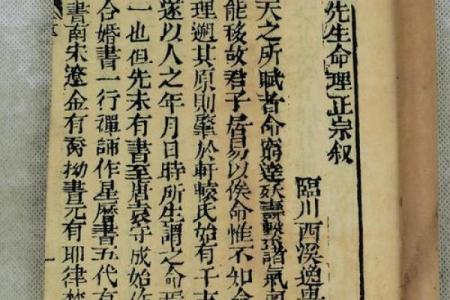 先生命理正宗叙
臨川西溪
天之所賦者命窮達殀壽繫諸氣
能移故君子居易以俟命惟不知命
理遡其原則肇於軒轅氏始有干
遂以人之年月日時所生謂之命
一也但先未有書至唐袁守成始作
合婚書一行禪師作星曆書五代有
書南宋遼金有裔拗書元有耶律楚